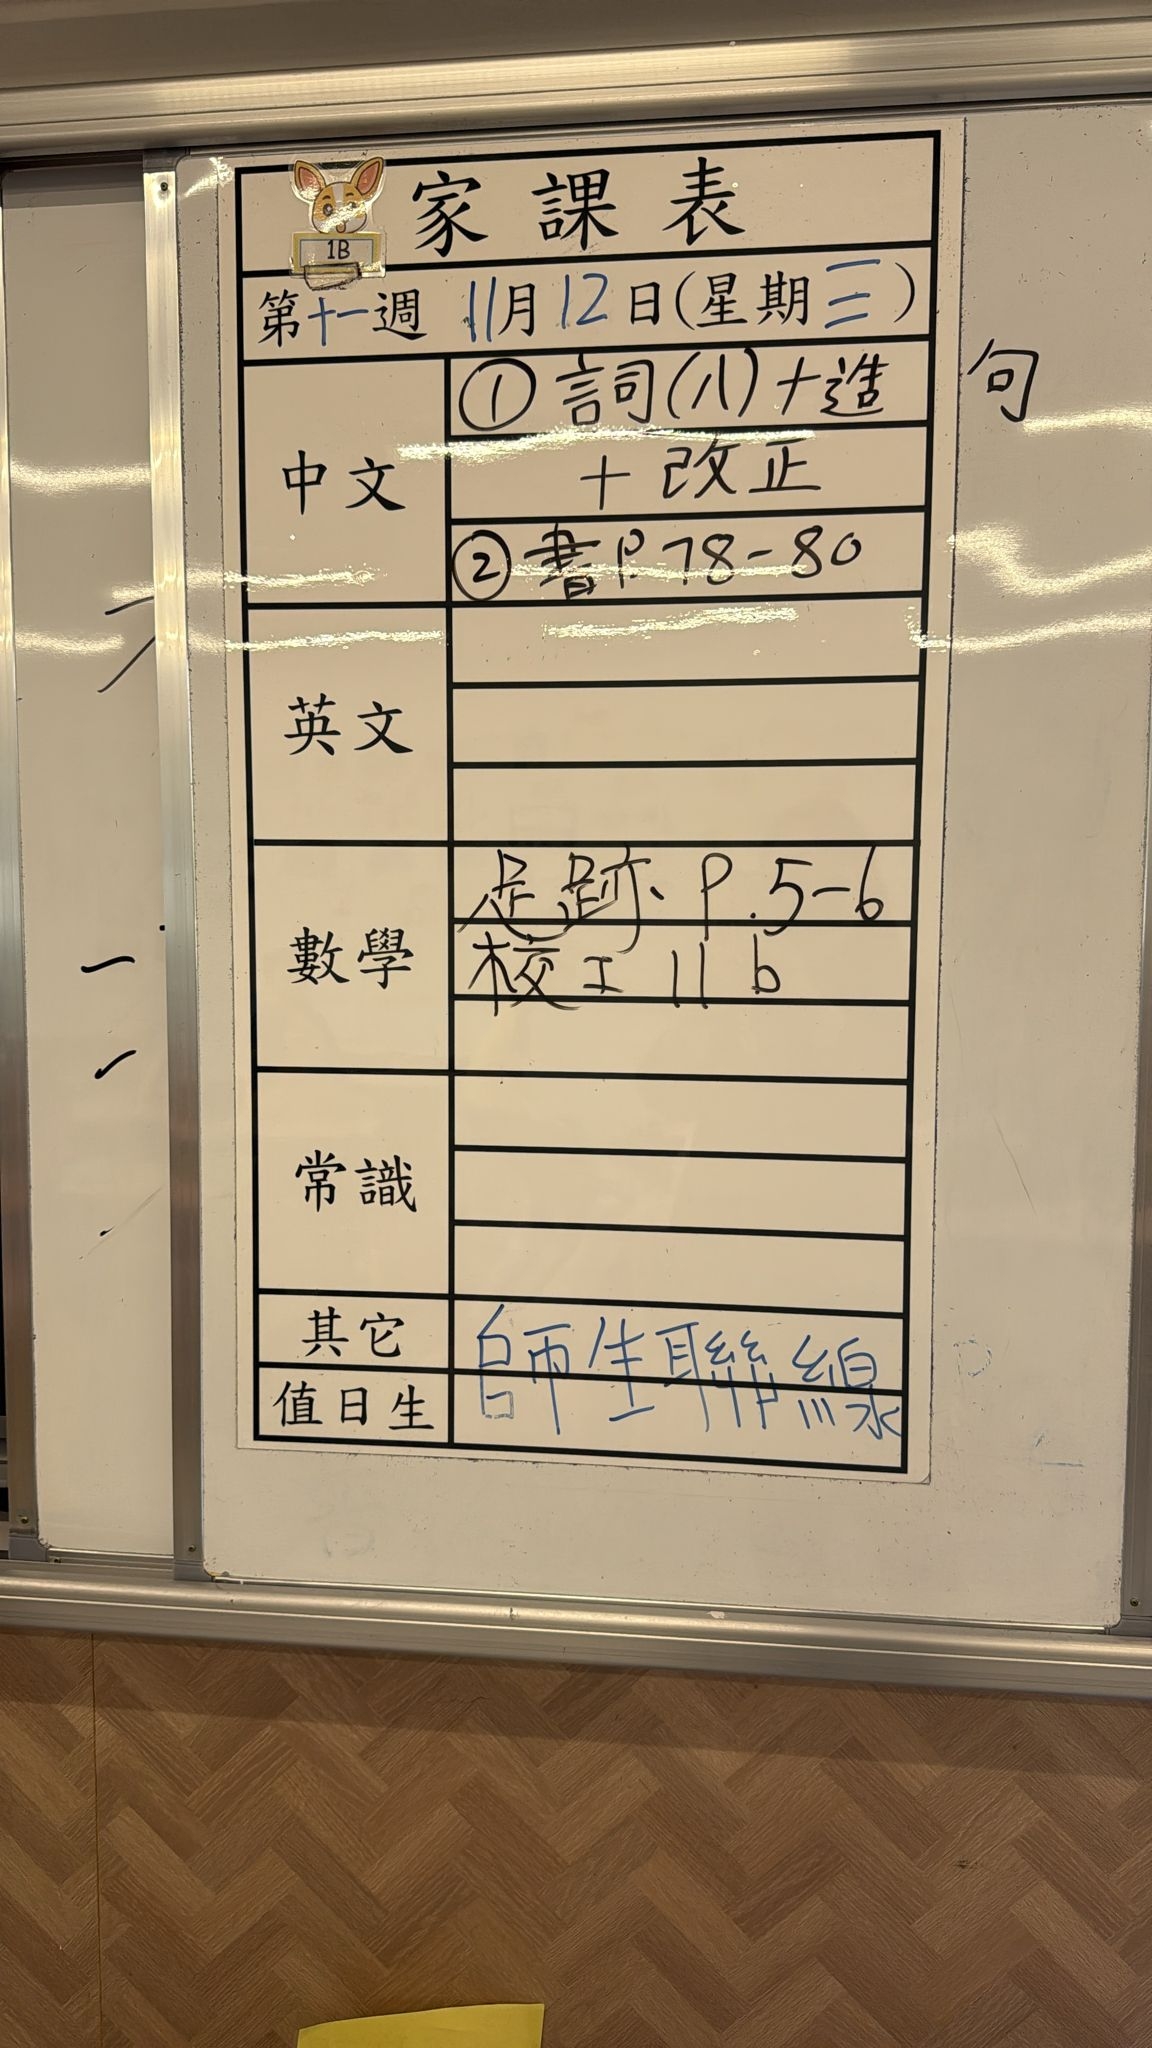 家課表
1B
第十一週 11月12日(星期三)
中文
①詞(八)+造句
+改正
②書P.78-80
英文
數學
足跡、P.5-6
校工11b
常識
其它
師生聯線
值日生